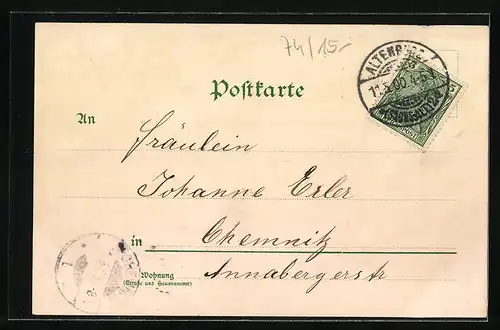 74/15-
ALTENBURG
11.5.00.4-5N
Postkarte
An
Fräulein
Johanne Erler
in
Chemnitz
Wohnung
(Straße und Hausnummer)
Annabergerstr